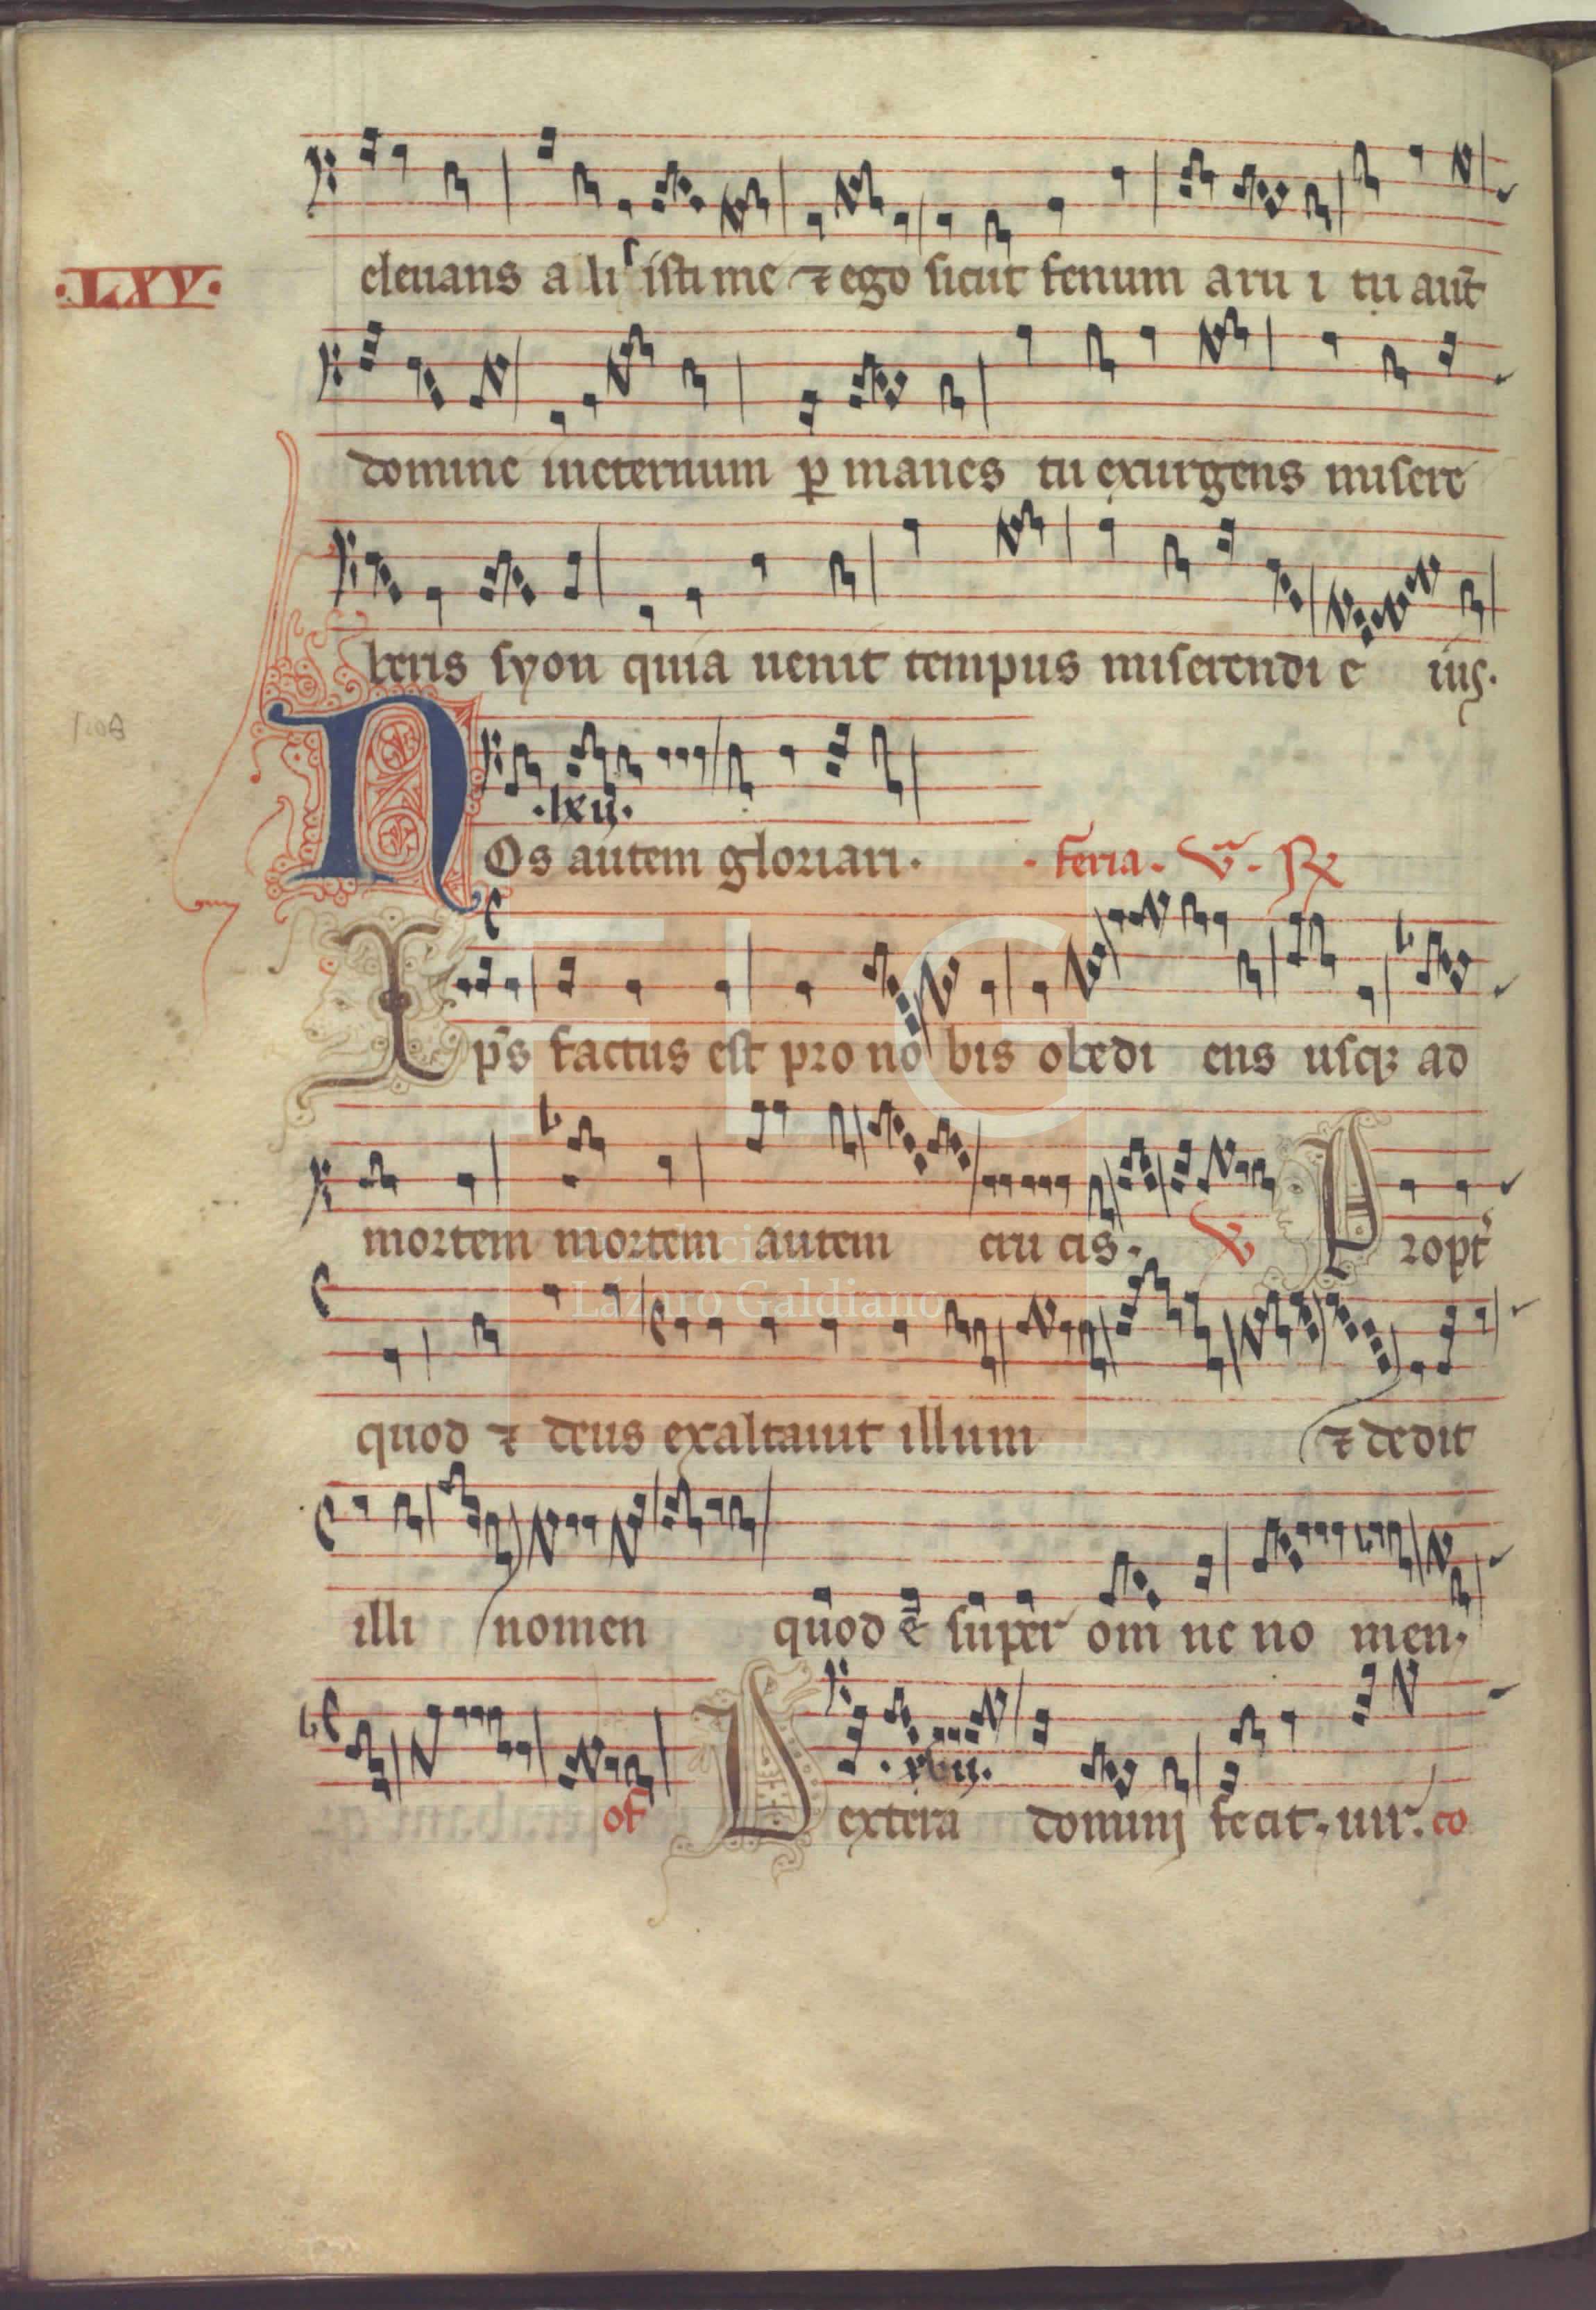 ·LXV·
eleuans a li ſiſti me ⁊ ego ſicut fenum aru i tu aut̄
domine ineternum ꝑ manes tu exurgens miſere
beris ſyon quia uenit tempus miſerendi e iuſ.
·lxii·
NOs autem gloriari. · feria · Vᵃ · ℞
Xp̄s factus eſt pro no bis obedi ens uſqꝫ ad
mortem mortem autem cru cis. V Propt̄
quod ⁊ deus exaltauit illum ⁊ dedit
illi nomen quod ē ſuper om ne no men.
·xvii·
of Dextera domini fecit. uir. co
Fundación
Lázaro Galdiano
FLG